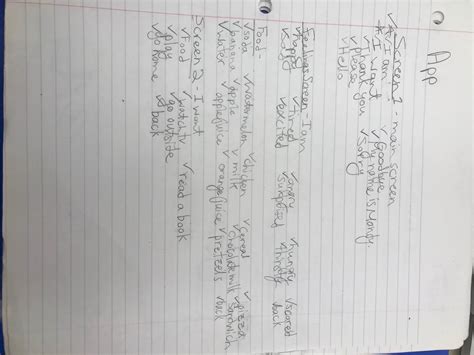 App
Screen 1 - main screen
✓I am ✓Goodbye
✓I want ✓My name is
✓Thank you ✓Sorry
✓please
✓Hello
Feelings Screen - I am
✓happy ✓tired ✓angry ✓hungry ✓scared
✓excited ✓surprised ✓thirsty back
Food -
✓soda ✓watermelon ✓chicken ✓cereal ✓pizza
✓banana ✓apple ✓milk ✓chocolate milk ✓sandwich
✓water applejuice ✓orange juice ✓pretzels ✓back
Screen 2 - I want
✓food ✓watch tv ✓read a book
✓play ✓go outside
✓go home ✓back